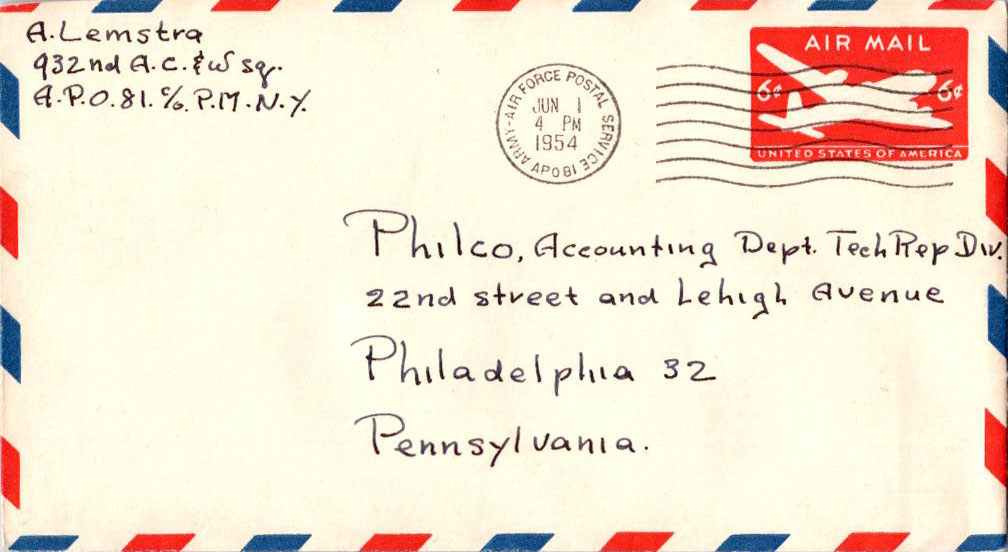 A. Lemstra
932nd A.C. & W sq.
A.P.O. 81. c/o P.M. N.Y.
ARMY-AIR FORCE POSTAL SERVICE
JUN 1
4 PM
1954
APO 81
AIR MAIL
6¢ 6¢
UNITED STATES OF AMERICA
Philco, Accounting Dept. Tech Rep Div.
22nd street and Lehigh Avenue
Philadelphia 32
Pennsylvania.